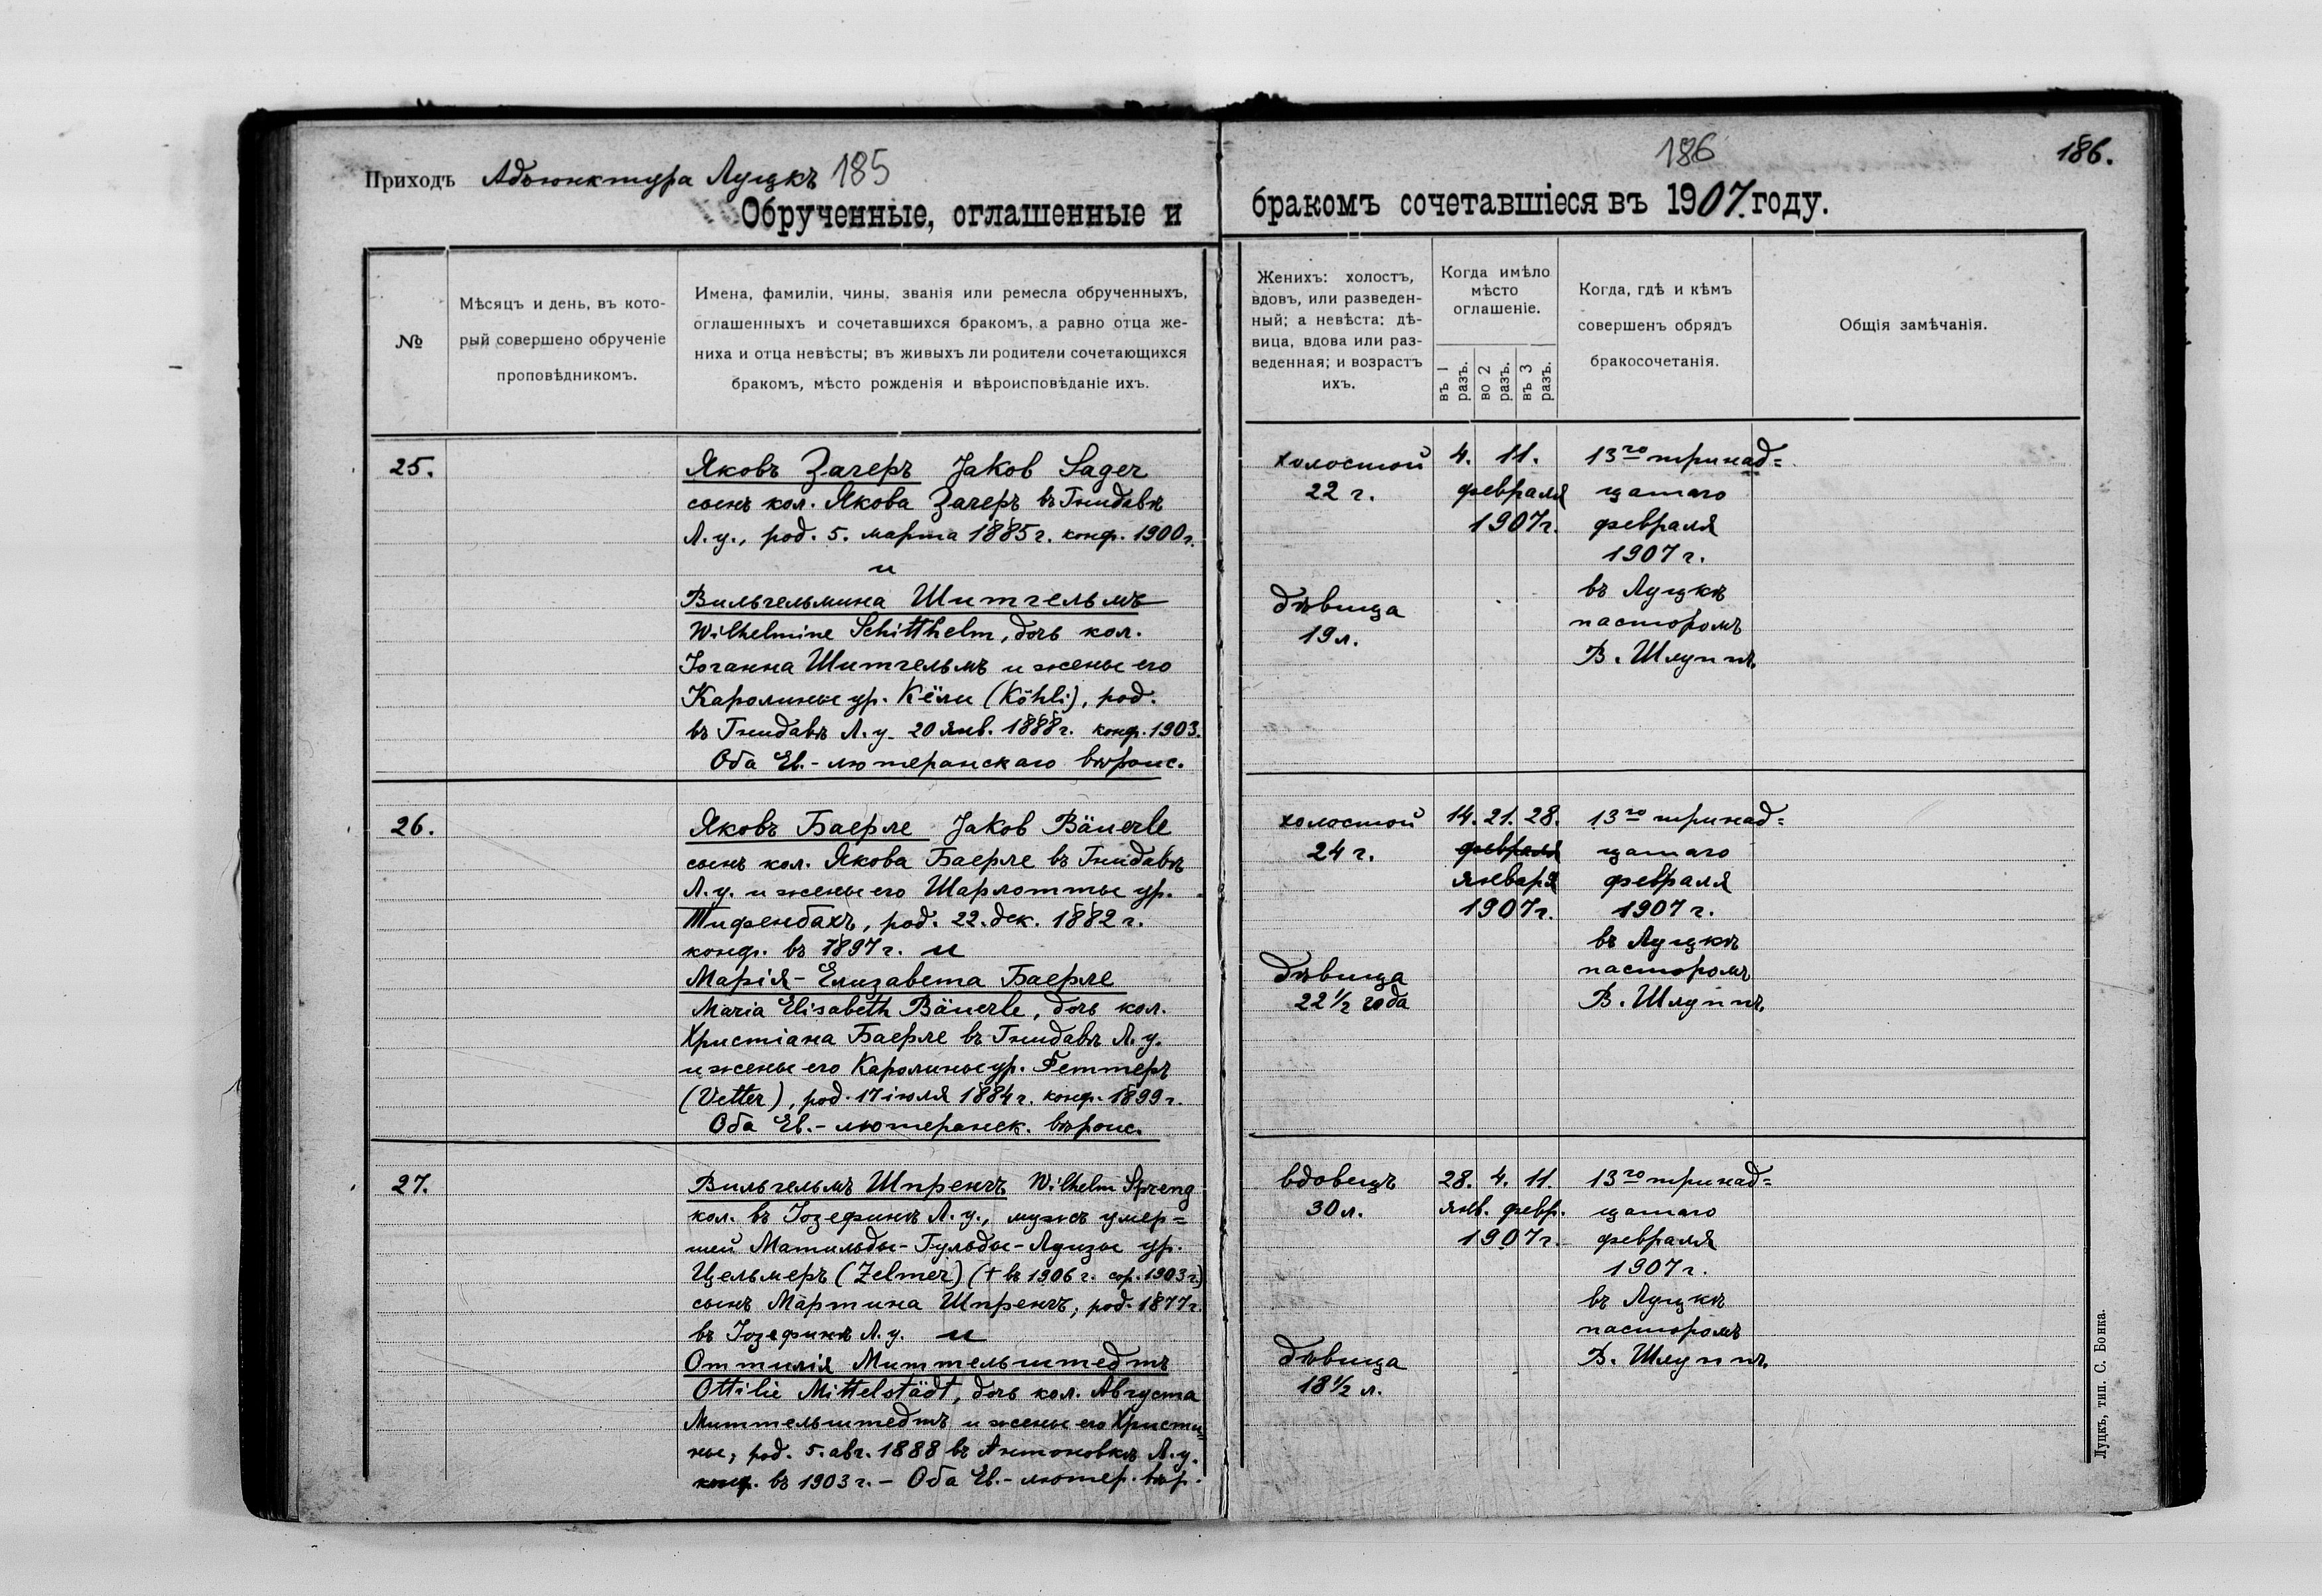 Приходъ Адъюнктура Луцкъ 185
Обрученные, оглашенные и
№
Мѣсяцъ и день, въ кото-
рый совершено обрученіе
проповѣдникомъ.
Имена, фамиліи, чины, званія или ремесла обрученныхъ,
оглашенныхъ и сочетавшихся бракомъ, а равно отца же-
ниха и отца невѣсты; въ живыхъ ли родители сочетающихся
бракомъ, мѣсто рожденія и вѣроисповѣданіе ихъ.
25.
Яковъ Загеръ Jakob Sager
сынъ кол. Якова Загеръ въ Гнидавѣ
Л. у., род. 5. марта 1885 г. конф. 1900 г.
и
Вильгельмина Шитгельмъ
Wilhelmine Schitthelm, дочь кол.
Іоганна Шитгельмъ и жены его
Каролины ур. Кёли (Köhli), род.
въ Гнидавѣ Л. у. 20 янв. 1888 г. конф. 1903.
Оба Ев.-лютеранскаго вѣроис.
26.
Яковъ Баерле Jakob Bäuerle
сынъ кол. Якова Баерле въ Гнидавѣ
Л. у. и жены его Шарлотты ур.
Тифенбахъ, род. 22. дек. 1882 г.
конф. въ 1897 г. и
Марія-Елизавета Баерле
Maria Elisabeth Bäuerle, дочь кол.
Христіана Баерле въ Гнидавѣ Л. у.
и жены его Каролины ур. Феттеръ
(Vetter), род. 17 іюля 1884 г. конф. 1899 г.
Оба Ев.-лютеранск. вѣроис.
27.
Вильгельмъ Шпренгъ Wilhelm Spreng
кол. въ Іозефинѣ Л. у., мужъ умер=
шей Матильды-Гульды-Луизы ур.
Цельмеръ (Zelmer) († въ 1906 г. сор. 1903 г.)
сынъ Мартина Шпренгъ, род. 1877 г.
въ Іозефинѣ Л. у. и
Оттилія Миттельштедтъ
Ottilie Mittelstädt, дочь кол. Августа
Миттельштедтъ и жены его Христи=
ны, род. 5. авг. 1888 въ Антоновкѣ Л. у.
конф. въ 1903 г. – Оба Ев.-лютер. вѣр.
186
186.
бракомъ сочетавшіеся въ 1907. году.
Женихъ: холостъ,
вдовъ, или разведен-
ный; а невѣста: дѣ-
вица, вдова или раз-
веденная; и возрастъ
ихъ.
Когда имѣло
мѣсто
оглашеніе.
въ 1 разъ.
во 2 разъ.
въ 3 разъ.
Когда, гдѣ и кѣмъ
совершенъ обрядъ
бракосочетанія.
Общія замѣчанія.
холостой 4. 11. 13го тринад=
22 г. февраля цатаго
1907 г. февраля
1907 г.
въ Луцкѣ
дѣвица пасторомъ
19 л. В. Шлуппъ.
холостой 14. 21. 28. 13го тринад=
24 г. февраля цатаго
января февраля
1907 г. 1907 г.
въ Луцкѣ
дѣвица пасторомъ
22½ года В. Шлуппъ.
вдовецъ 28. 4. 11. 13го тринад=
30 л. янв. февр. цатаго
1907 г. февраля
1907 г.
въ Луцкѣ
пасторомъ
дѣвица В. Шлуппъ.
18½ л.
Луцкъ, тип. С. Бонка.